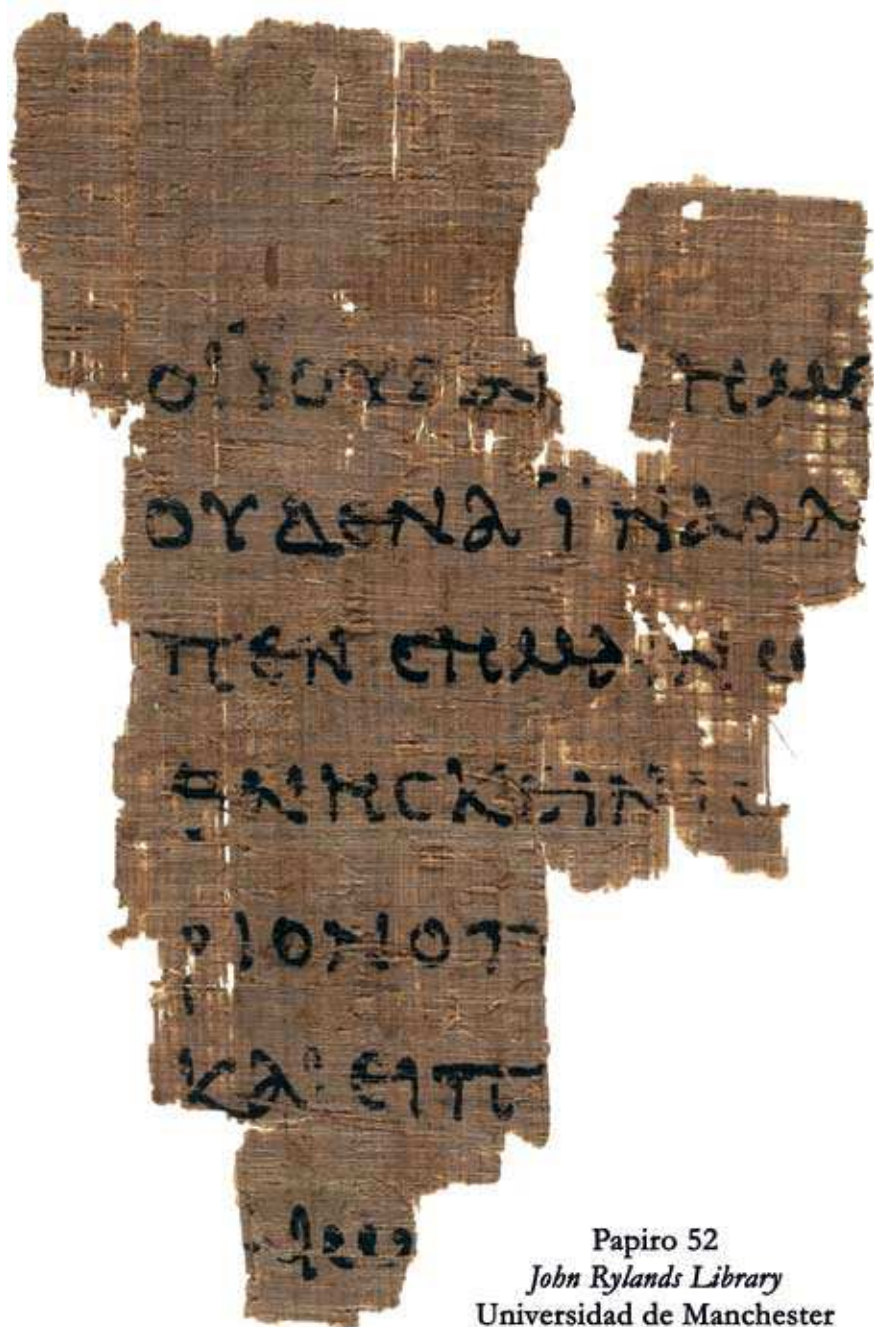 ΟΙ ΙΟΥΔΑΙ ΗΜΕ
ΟΥΔΕΝΑ ΙΝΑ Ο Λ
ΠΕΝ ΣΗΜΑΙΝΩ
ΘΝΗΣΚΕΙΝ ΙΣ
ΡΙΟΝ Ο Π
ΚΑΙ ΕΙΠ
Papiro 52
John Rylands Library
Universidad de Manchester